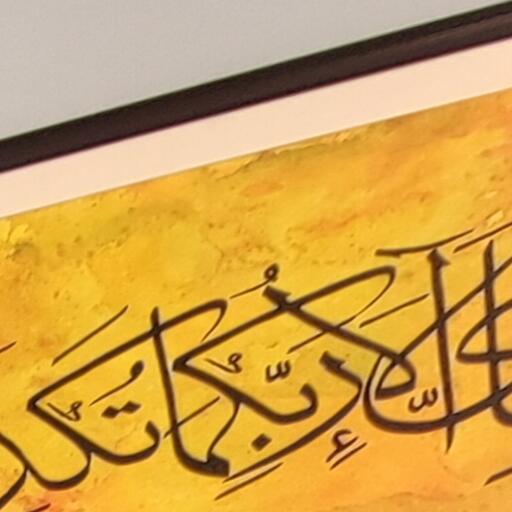 آلاءِ رَبِّكُمَا تُكَذ